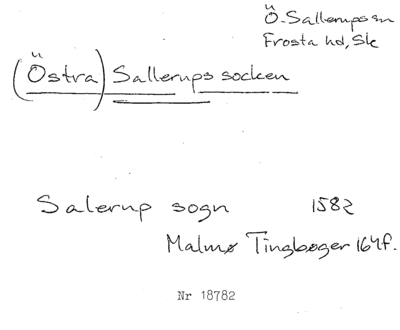 Ö-Sallerups sn
Frosta hd, Sk
(Östra) Sallerups socken
Salerup sogn 1582
Malmø Tingbøger 164f.
Nr 18782